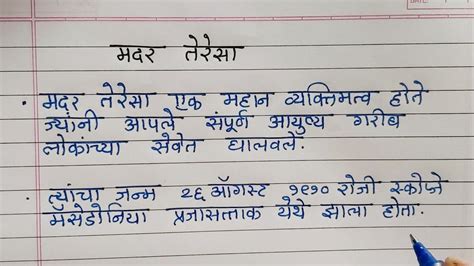 मदर तेरेसा
• मदर तेरेसा एक महान व्यक्तिमत्व होते
ज्यांनी आपले संपूर्ण आयुष्य गरीब
लोकांच्या सेवेत घालवले.
• त्यांचा जन्म २६ ऑगस्ट १९१० रोजी स्कोप्जे
मॅसेडोनिया प्रजासत्ताक येथे झाला होता.